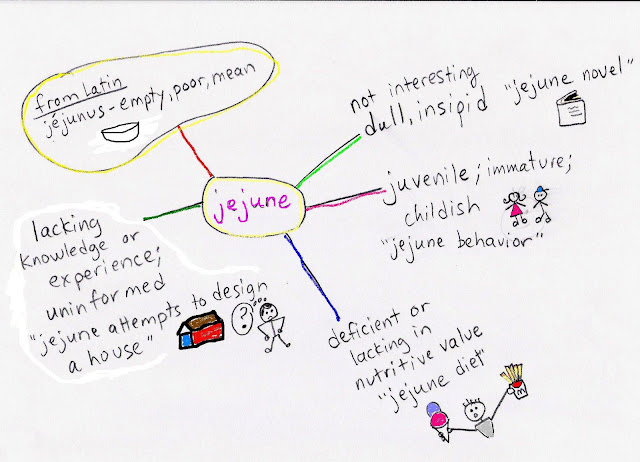 from Latin
jējunus - empty, poor, mean
jejune
not interesting
dull, insipid "jejune novel"
juvenile; immature;
childish
"jejune behavior"
lacking
knowledge or
experience;
uninformed
"jejune attempts to design
a house"
?
deficient or
lacking in
nutritive value
"jejune diet"
m